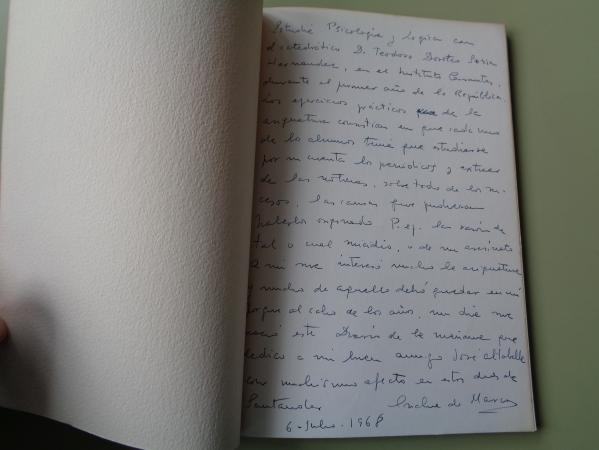 Estudié Psicología y Lógica con
el catedrático D. Teodoro Doroteo Soria
Hernández, en el Instituto Cervantes,
durante el primer año de la República.
Los ejercicios prácticos de la
asignatura consistían en que cada uno
de los alumnos tenía que estudiarse
por su cuenta los periódicos y extraer
de las noticias, sobre todo de los su-
cesos, las causas que pudieran
haberlos originado. P. ej. la razón de
tal o cual suicidio, o de un asesinato
A mí me interesó mucho la asignatura
y mucho de aquello debió quedar en mí
porque al cabo de los años, un día me
nació este Diario de la mañana que
dedico a mi buen amigo José
con muchísimo afecto en estos días de
Santander de Marco
6-Julio-1968